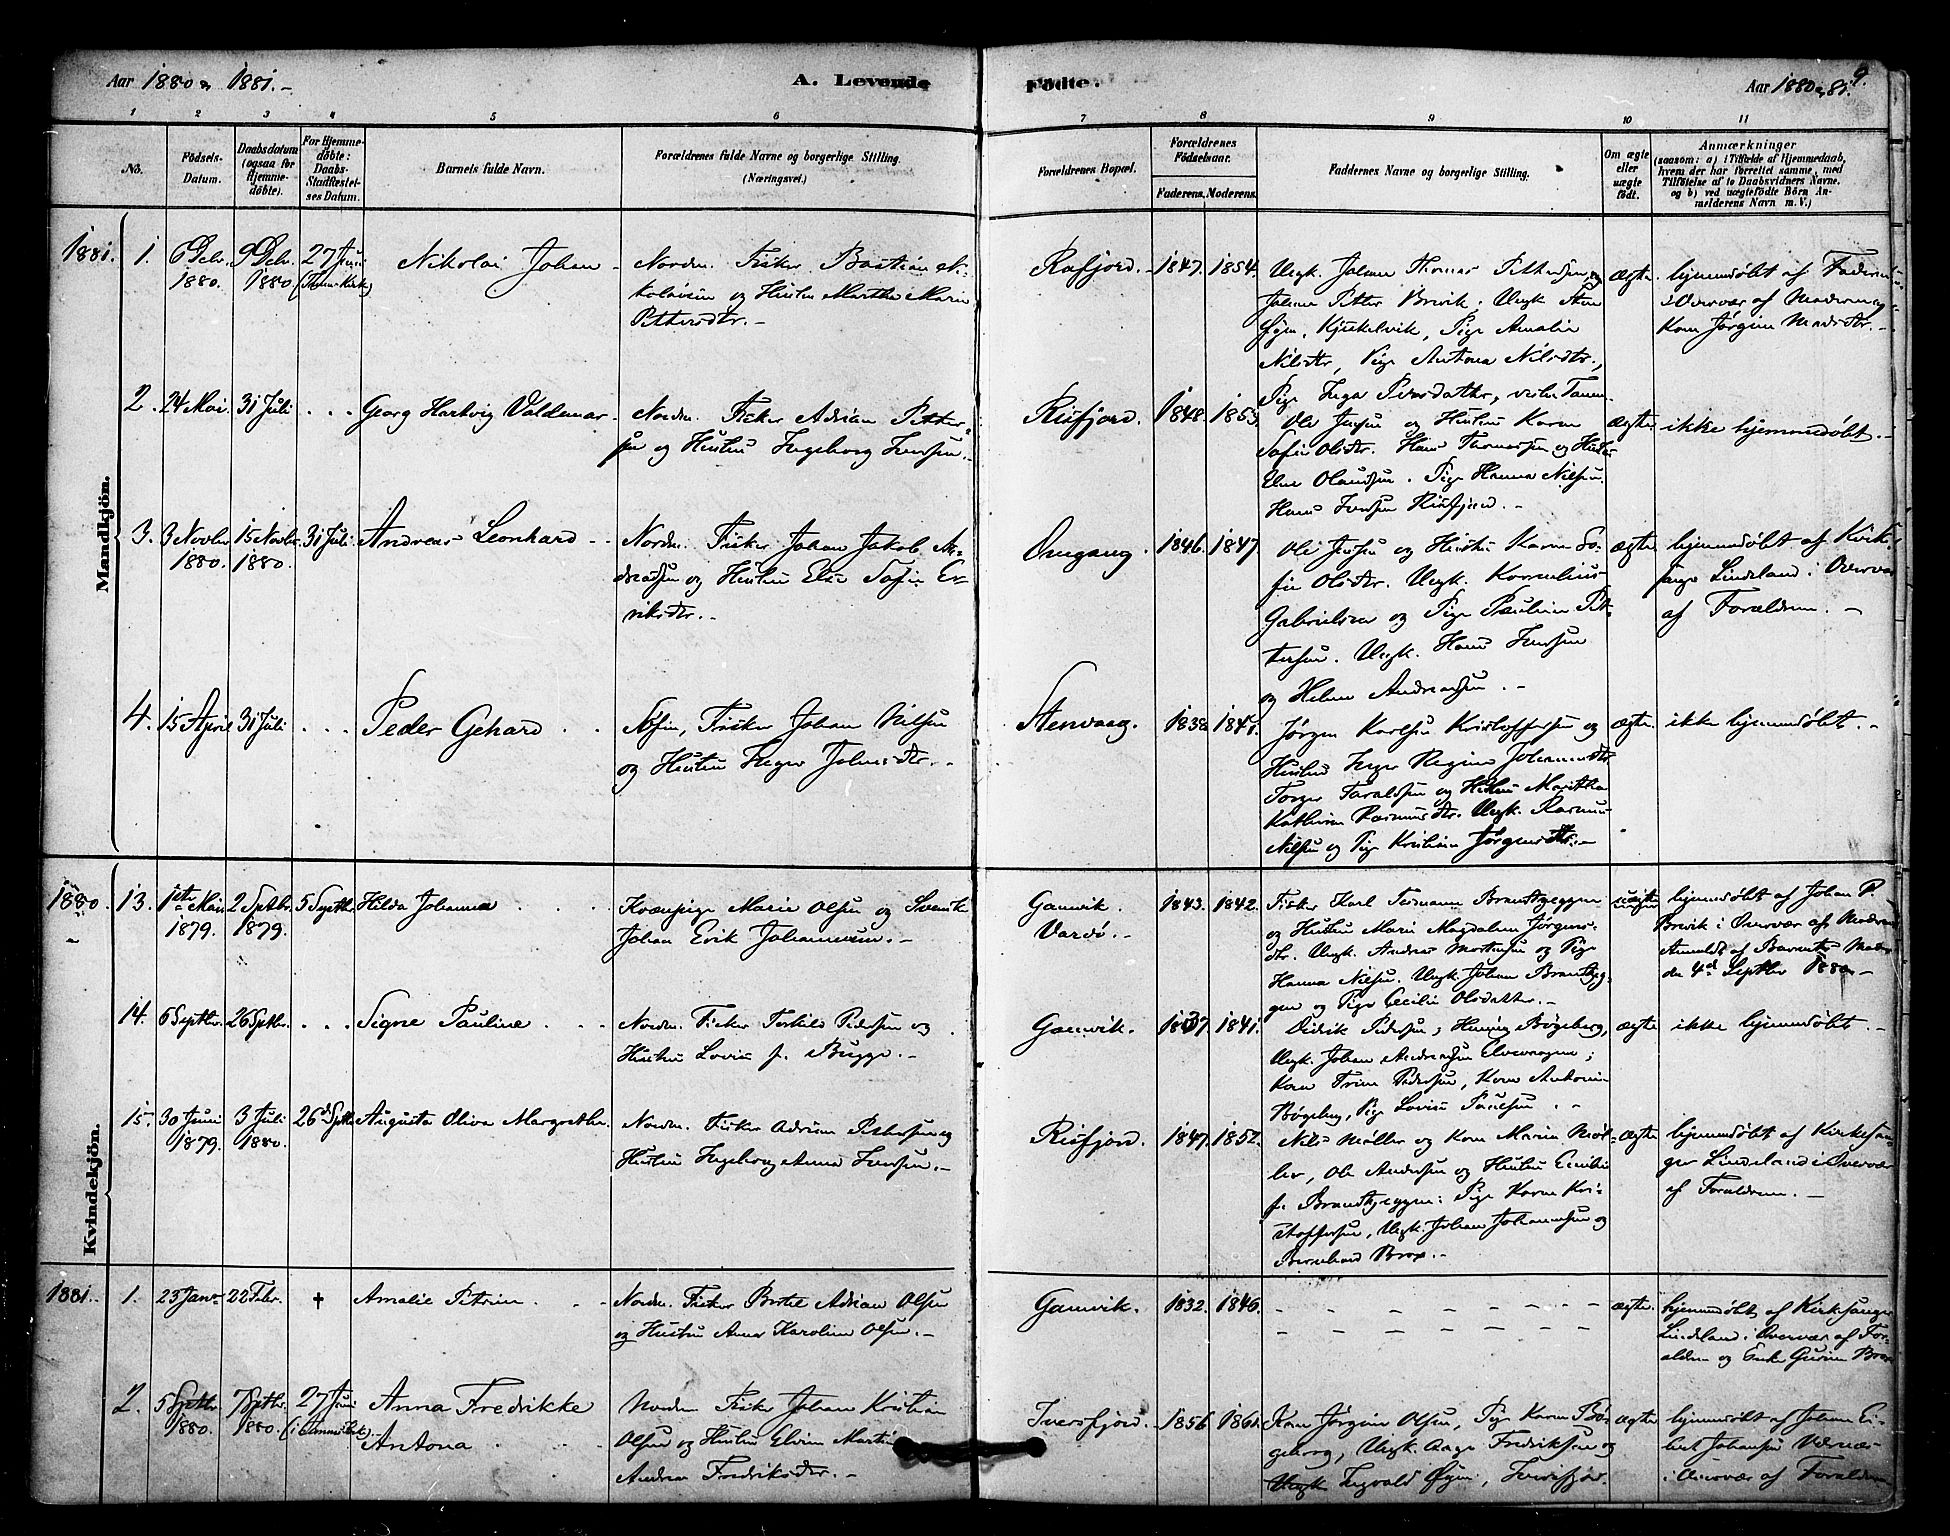 Aar 1880 & 1881. -
A. Levende
Födte.
Aar 1880 & 81.
9.
1 2 3 4 5 6 7 8 9 10 11
No.
Födsels-Datum.
Daabsdatum (ogsaa for Hjemmedöbte).
For Hjemmedöbte: Daabs-Stadfæstelses Datum.
Barnets fulde Navn.
Forældrenes fulde Navne og borgerlige Stilling. (Næringsvei.)
Forældrenes Bopæl.
Forældrenes Födselsaar.
Faderens. Moderens.
Faddernes Navne og borgerlige Stilling.
Om ægte eller uægte födt.
Anmærkninger
(saasom: a) i Tilfælde af Hjemmedaab, hvem der har forrettet samme, med Tilföielse af to Daabsvidners Navne, og b) ved uægtefödte Börn Anmelderens Navn m. V.)
Mandkjön.
1881.
1. 6 Debr. 1880. 9 Debr. 1880. 27 Juni
Nikolai Johan
Norden. Fisker Bastian Ni-
kolaisen og Hustru Martha Marie
Pettersdtr. -
Risfjord. - 1847. 1854.
Ungk. Johan Thomas Pettersen og
Johan Petter Brevik, Ungk. Sten
Kjeskelvik, Pige Amalie
Nilsdtr, Pige Antona Nilsdtr.,
Pige Inga Pedersdatter,
ægte.
hjemmedöbt af Faderen
i Overvær af Moderen og
Kone Jörgine Madsdtr. -
2. 24 Mai. 31 Juli . . .
Georg Hartvig Valdemar -
Nordm. Fisker Adrian Petter-
sen og Hustru Ingeborg Iversen. -
Risfjord. 1848. 1853.
Ole Jensen og Hustru Karen
Sofie Olsdtr. Hans Thomassen og Hustru
Else Olaussen. Pige Hanna Nilsen.
Hans Iversen Risfjord. -
ægte. ikke hjemmedöbt. -
3. 3 Novbr 1880. 15 Novbr 1880. 31 Juli
Andreas Leonhard -
Nordm. Fisker Johan Jakob An-
dreassen og Hustru Else Sofie Er-
iksdtr. -
Omgang 1846. 1847
Ole Jensen og Hustru Karen So-
fie Olsdtr. Ungk. Kornelius
Gabrielsen og Pige Pauline Pet-
tersen. Ungk. Hans Iversen
og Helene Andreassen. -
ægte. hjemmedöbt af Kirke-
sanger Lindeland i Overvær
af Forældrene. -
4. 15 April 31 Juli . . .
Peder Gehard . .
Söfin, Fisker Johan Nilsen
og Hustru Inger Johnsdtr. -
Stenvaag. 1838
Jörgen Karlsen Kristoffersen og
Hustru Inger Regine Johannesdtr
Torger Taraldsen og Hustru Maritha
Kathrine Rasmusdtr. Ungk. Rasmus
Nilsen og Pige Kristiane Jörgensdtr. -
ægte. ikke hjemmedöbt. -
Kvindekjön.
1880.
13. 1ste Mai 1879. 2 Septbr. 1879. 5 Septbr.
Hilda Johanna . . .
Kvænpige Marie Olsen og Svensk
Johan Erik Johannesen. -
Gamvik.
Vardö. - 1843. 1842.
Fisker Karl Normann Brandtzeggen
og Hustru Marie Magdalena Jörgens-
dtr. Ungk. Andreas Mortensen og Pige
Hanna Nilsen. Ungk. Johan Brandtzeg-
gen og Pige Cecilie Olsdatter. -
uægte
hjemmedöbt af Johan P.
Brevik i Overvær af Moderen
Anmeldt af Barnets Moder
den 4de Septbr 1880. -
14. 6 Septbr. 26 Septbr. . . .
Signe Pauline . . .
Nordm. Fisker Torkild Pedersen og
Hustru Lovise f. Bugge. -
Gamvik. 1837. 1841.
Didrik Pedersen, Henning Bögeberg,
Ungk. Johan Andreassen Elvevaagen;
Kone Trine Pedersen, Kone Antonie
Bögeberg, Pige Lovise Paulsen. -
ægte ikke hjemmedöbt. -
15. 30 Juni 1879. 3 Juli 1880. 26de Septbr
Augusta Oliva Margrethe.
Nordm. Fisker Adrian Pettersen og
Hustru Ingeborg Anna Iversen. -
Risfjord. 1847. 1852.
Nils Möller og Kone Marie Möl-
ler, Ole Andersen og Hustru Emilie
f. Brandtzeggen: Pige Karen Kri-
stoffersen, Ungk. Johan Johannesen og
Bernhard Brox. -
ægte hjemmedöbt af Kirkesan-
ger Lindeland i Overvær
af Forældrene. -
1881.
1. 23 Janr 22 Febr. +
Amalie Petrine . . .
Nordm. Fisker Bertel Adrian Olsen
og Hustru Anna Karoline Olsen. -
Gamvik. 1832. 1846.
ægte. hjemmedöbt af Kirkesanger
Lindeland i Overvær af For-
ældrene og Enke Gurine Brox
2. 5 Septbr. 1880. 7 Septbr. 1880. 27 Juni
Anna Fredrikke
Antona . . .
Nordm Fisker Johan Kristian
Olsen og Hustru Elvine Martine
Andrea Fredriksdtr. -
Iversfjord. - 1856.
Kone Jörgine Olsen, Pige Karen Bö-
geberg, Ungk. Aage Fredriksen og
Ungk Ingvald Öyen, Iversfjord.
ægte. hjemmedöbt af Johan El-
Johansen Værnæs
i Overvær af Forældrene